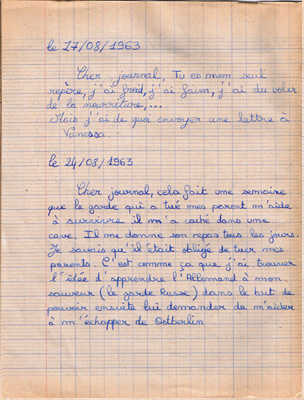 le 17/08/1963
Cher journal, Tu es mon seul
repère, j'ai froid, j'ai faim, j'ai du voler
de la nourriture,...
Mais j'ai de quoi envoyer une lettre à
Vanessa.
le 24/08/1963
Cher journal, cela fait une semaine
que le garde qui a tué mes parent m'aide
à survivre il m'a caché dans une
cave. Il me donne son repas tout les jours.
Je savais qu'il était obligé de tuer mes
parents. C'est comme ça que j'ai trouver
l'idée d'apprendre l'Allemand à mon
sauveur (le garde Russe) dans le but de
pouvoir ensuite lui demander de m'aider
à m'échapper de Ostberlin